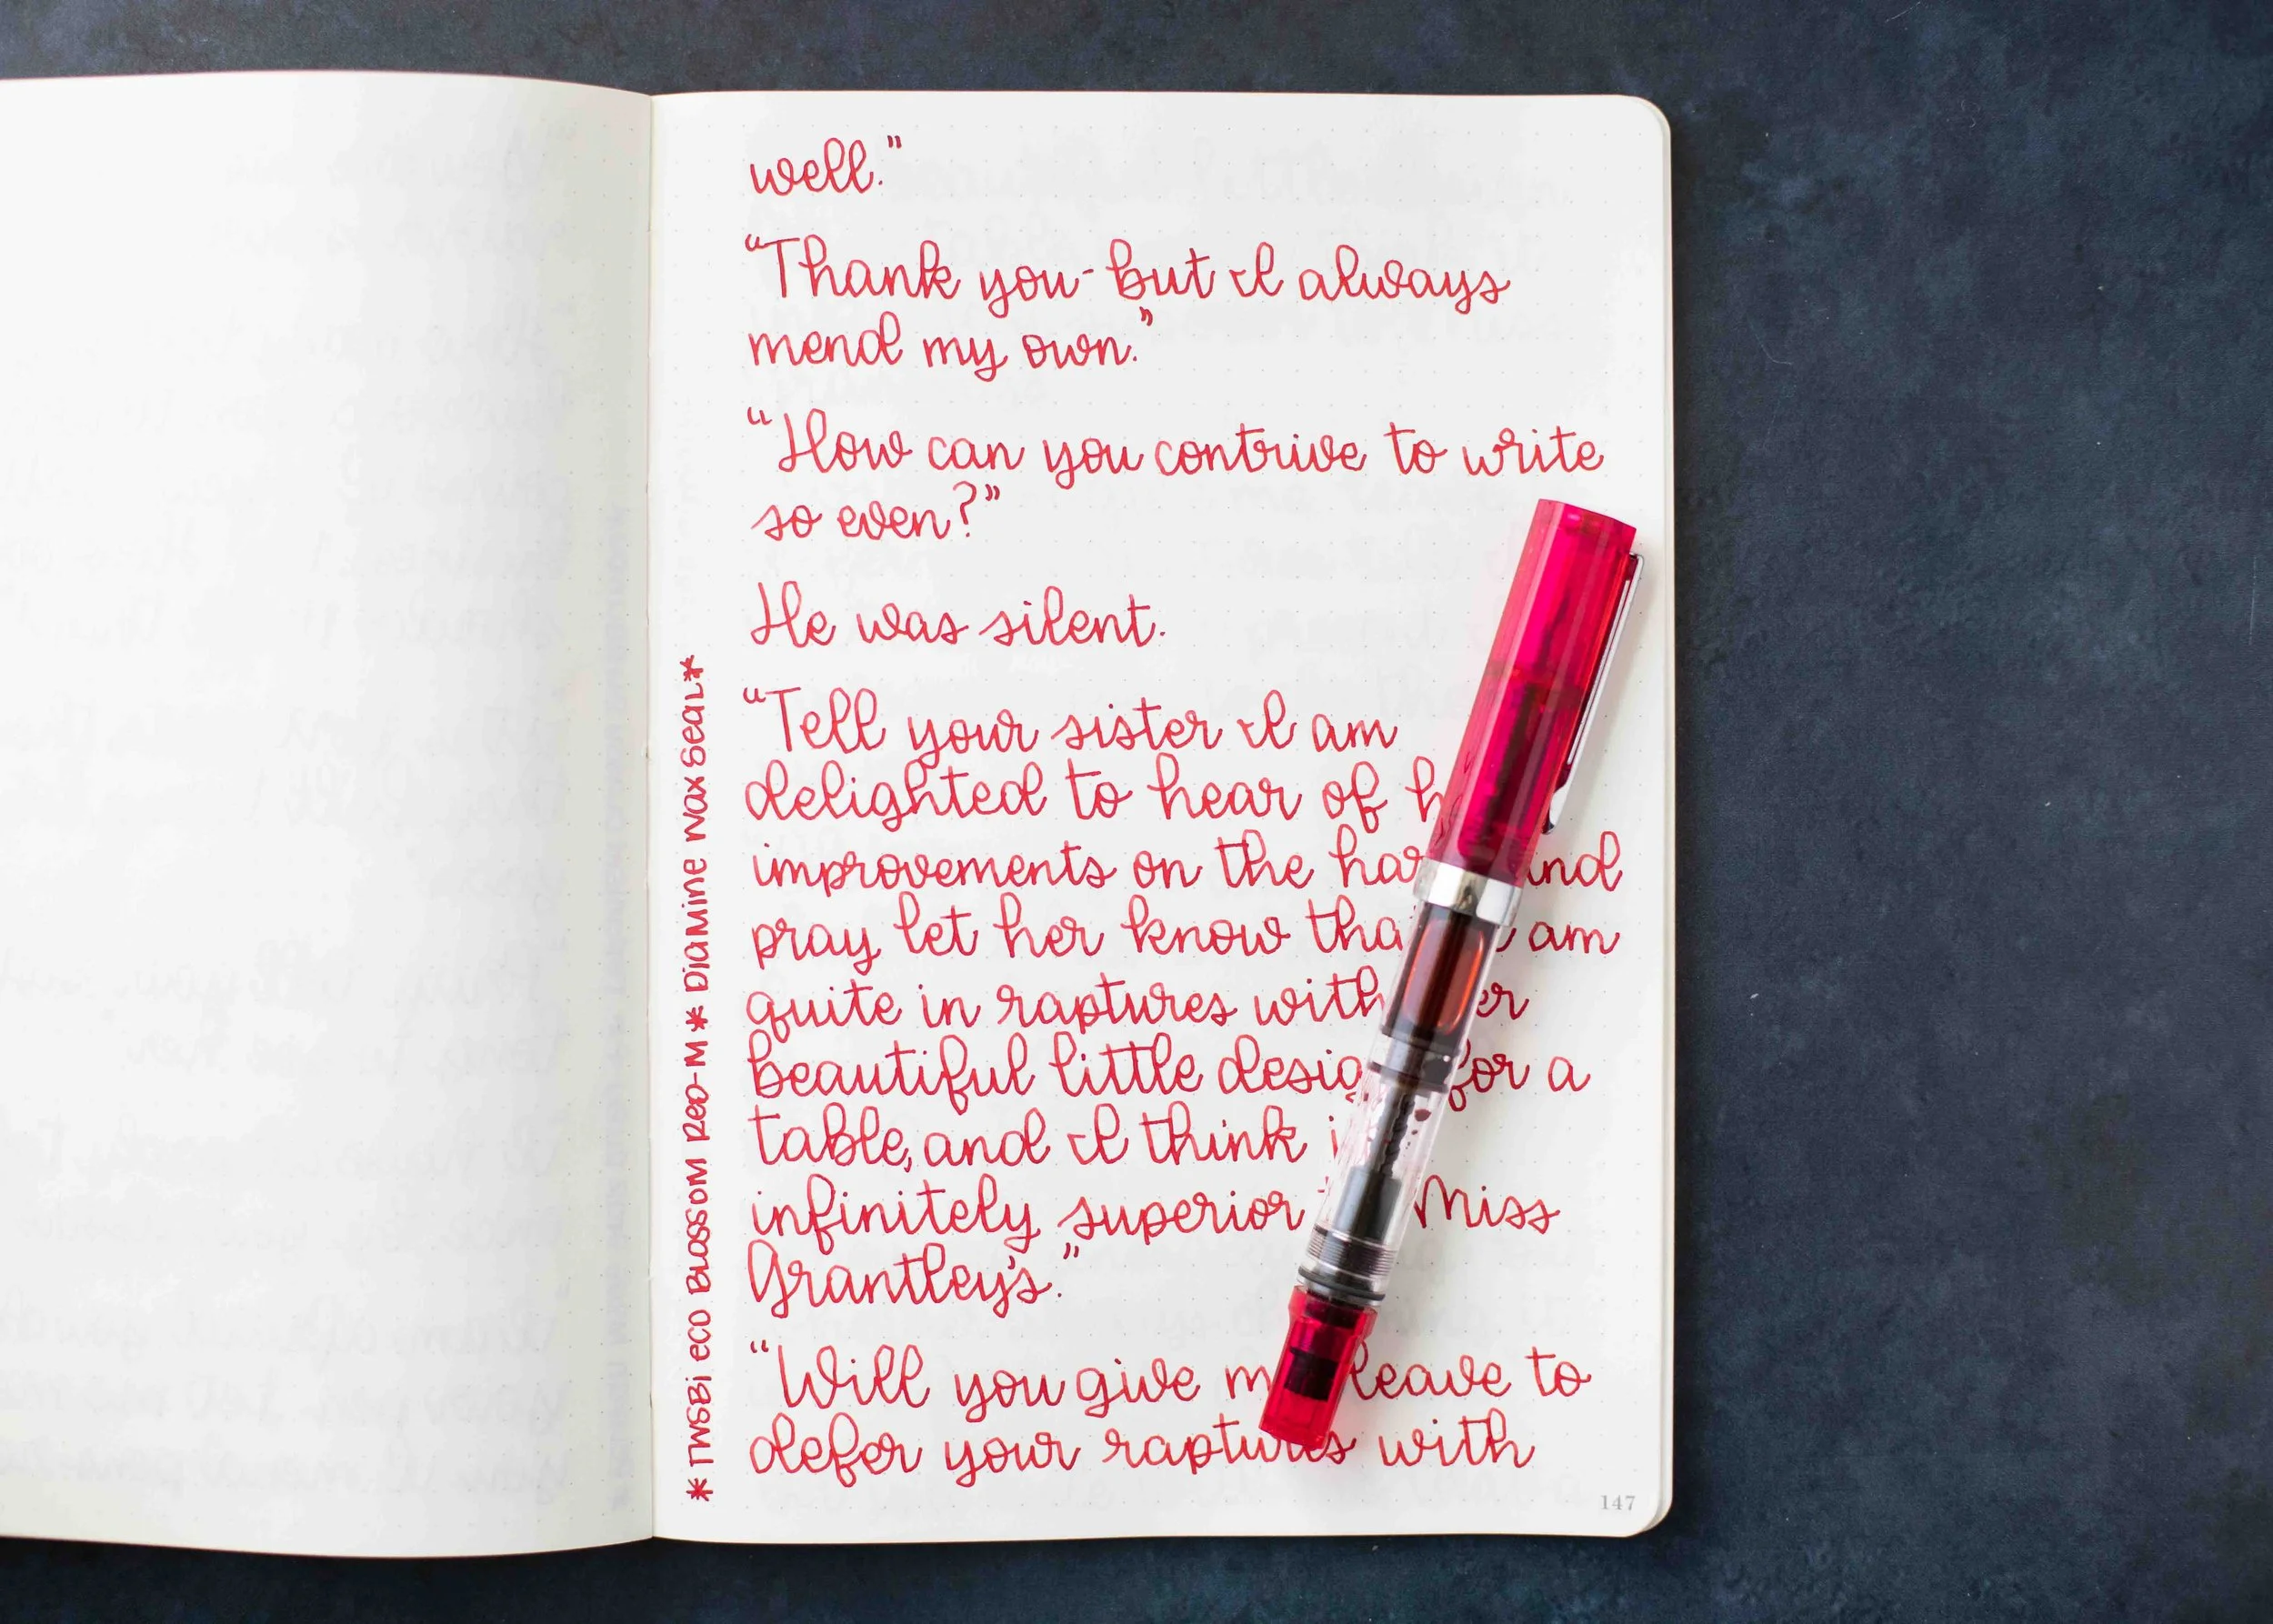 well."
"Thank you - but I always
mend my own."
"How can you contrive to write
so even?"
He was silent.
"Tell your sister I am
delighted to hear of h
improvements on the har and
pray let her know that I am
quite in raptures with her
beautiful little design for a
table, and I think i
infinitely superior Miss
Grantley's."
"Will you give me leave to
defer your raptures with
147
*TWSBI ECO BLOSSOM RED-M * DIAMINE WAX SEAL*